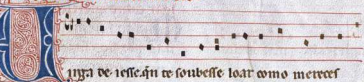 Uirga de iesse. quen te soubesse loar como mereces